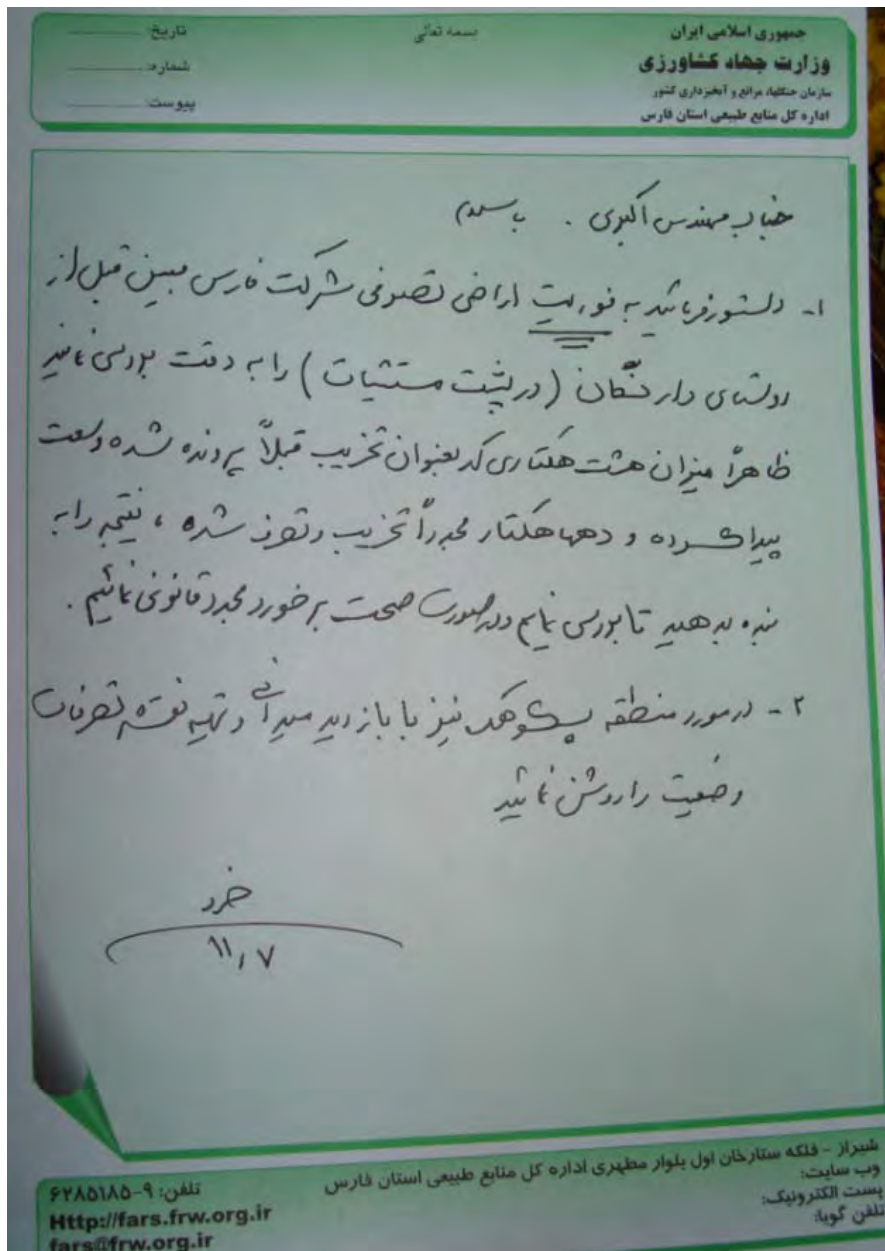 بسمه تعالی
جمهوری اسلامی ایران
وزارت جهاد کشاورزی
سازمان جنگلها، مراتع و آبخیزداری کشور
اداره کل منابع طبیعی استان فارس
تاریخ:
شماره:
پیوست:
جناب مهندس اکبری . باسلام
۱- دستور فرمائید به فوریت اراضی تصرفی شرکت فارس مبین قبل از
روستای دارنگان (در پشت مستثنیات) را به دقت بررسی نمائید
ظاهراً میزان هشت هکتاری که بعنوان تخریب قبلاً پرونده شده وسعت
پیدا کرده و دهها هکتار مجدداً تخریب و تصرف شده ، نتیجه را به
بنده بدهید تا بررسی نمایم و در صورت صحت برخورد مجدد قانونی نمائیم .
۲- در مورد منطقه کوهک نیز با بازدید میدانی و تهیه نقشه تصرفات
وضعیت را روشن نمائید
خرد
۱۱/۷
شیراز - فلکه ستارخان اول بلوار مطهری اداره کل منابع طبیعی استان فارس
تلفن: ۹-۶۲۸۵۱۸۵
وب سایت:
Http://fars.frw.org.ir
پست الکترونیک:
fars@frw.org.ir
تلفن گویا: